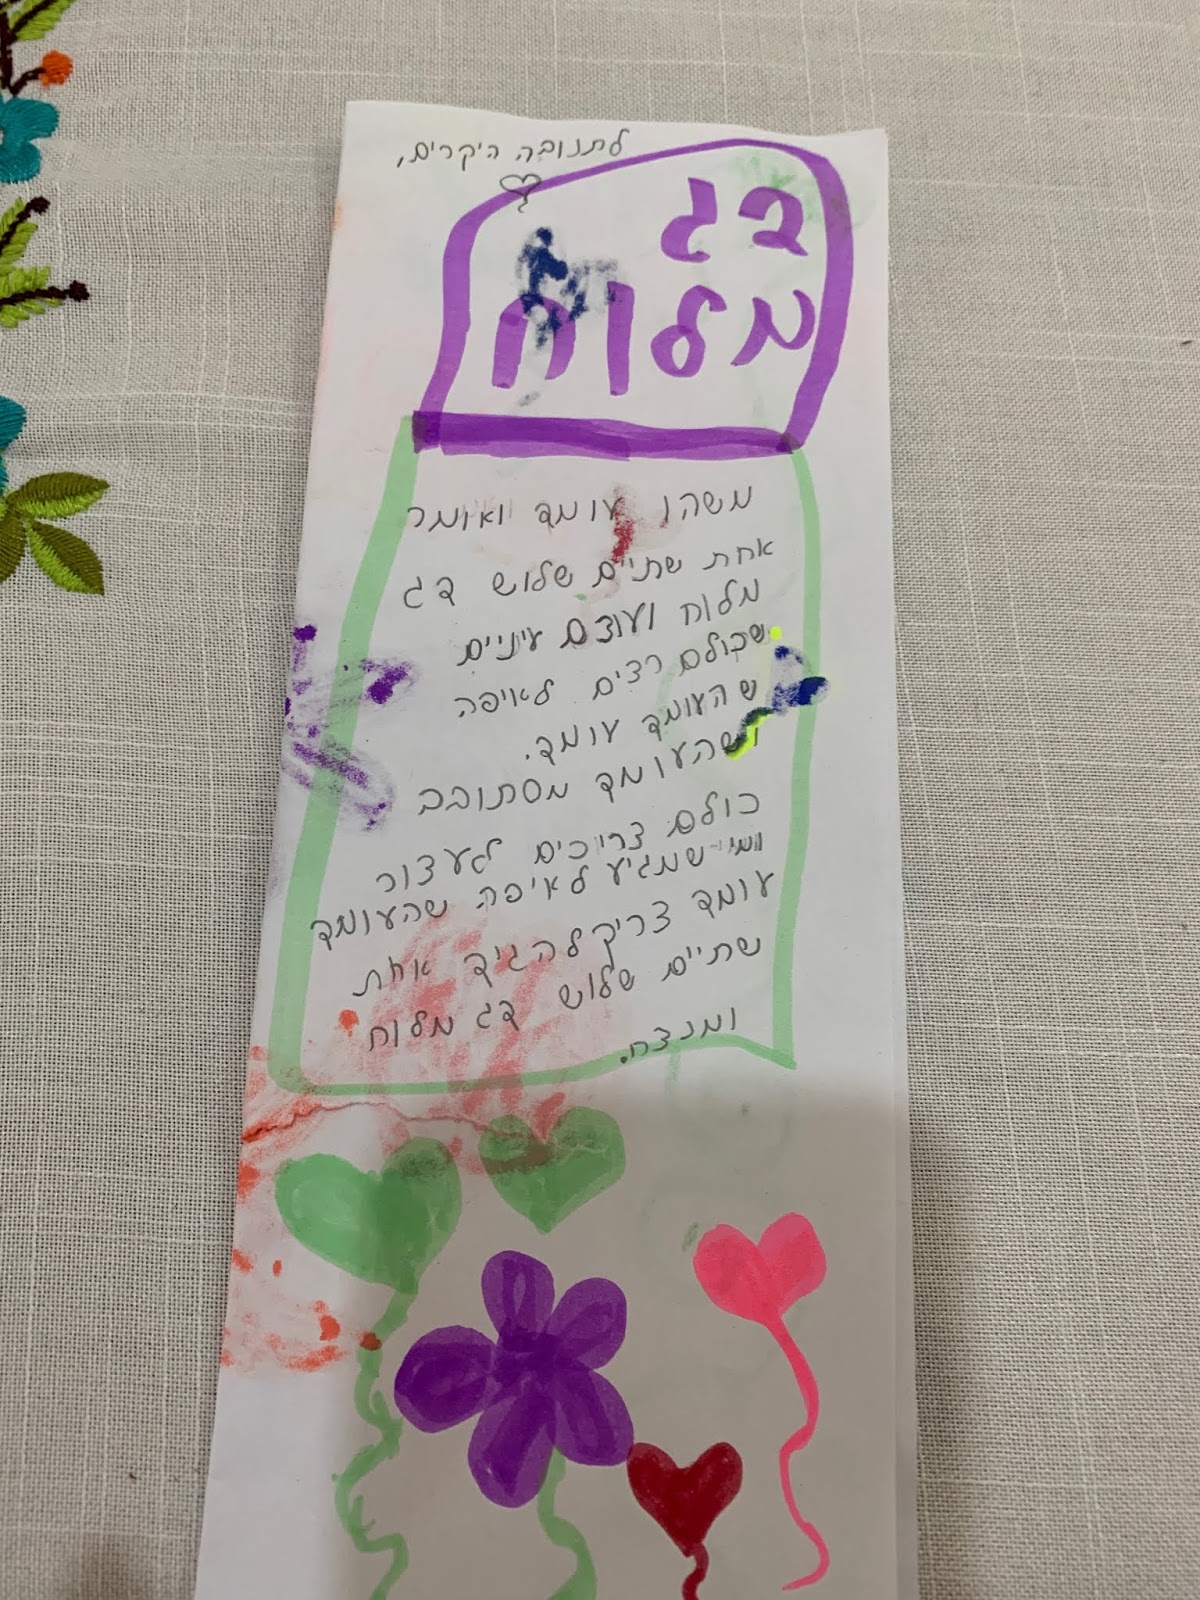 לתנובה היקרים,
דג
מלוח
משהו עומד ואומר
אחת שתיים שלוש דג
מלוח ועוצם עיניים
שכולם רצים לאיפה
שהעומד עומד.
ושהעומד מסתובב
כולם צריכים לעצור
ומי שמגיע לאיפה שהעומד
עומד צריק להגיד אחת
שתיים שלוש דג מלוח
ומנצח.